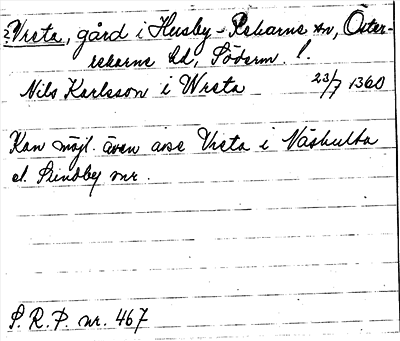 ? Vrsta, gård i Husby-Rekarne sn, Öster-
rekarne hd, Södermanl. l.
Nils Karlsson i Wrsta 23/7 1360
Kan möjl. även avse Vrsta i Näshulta
el. Sundby snr.
S. R. P. nr. 467